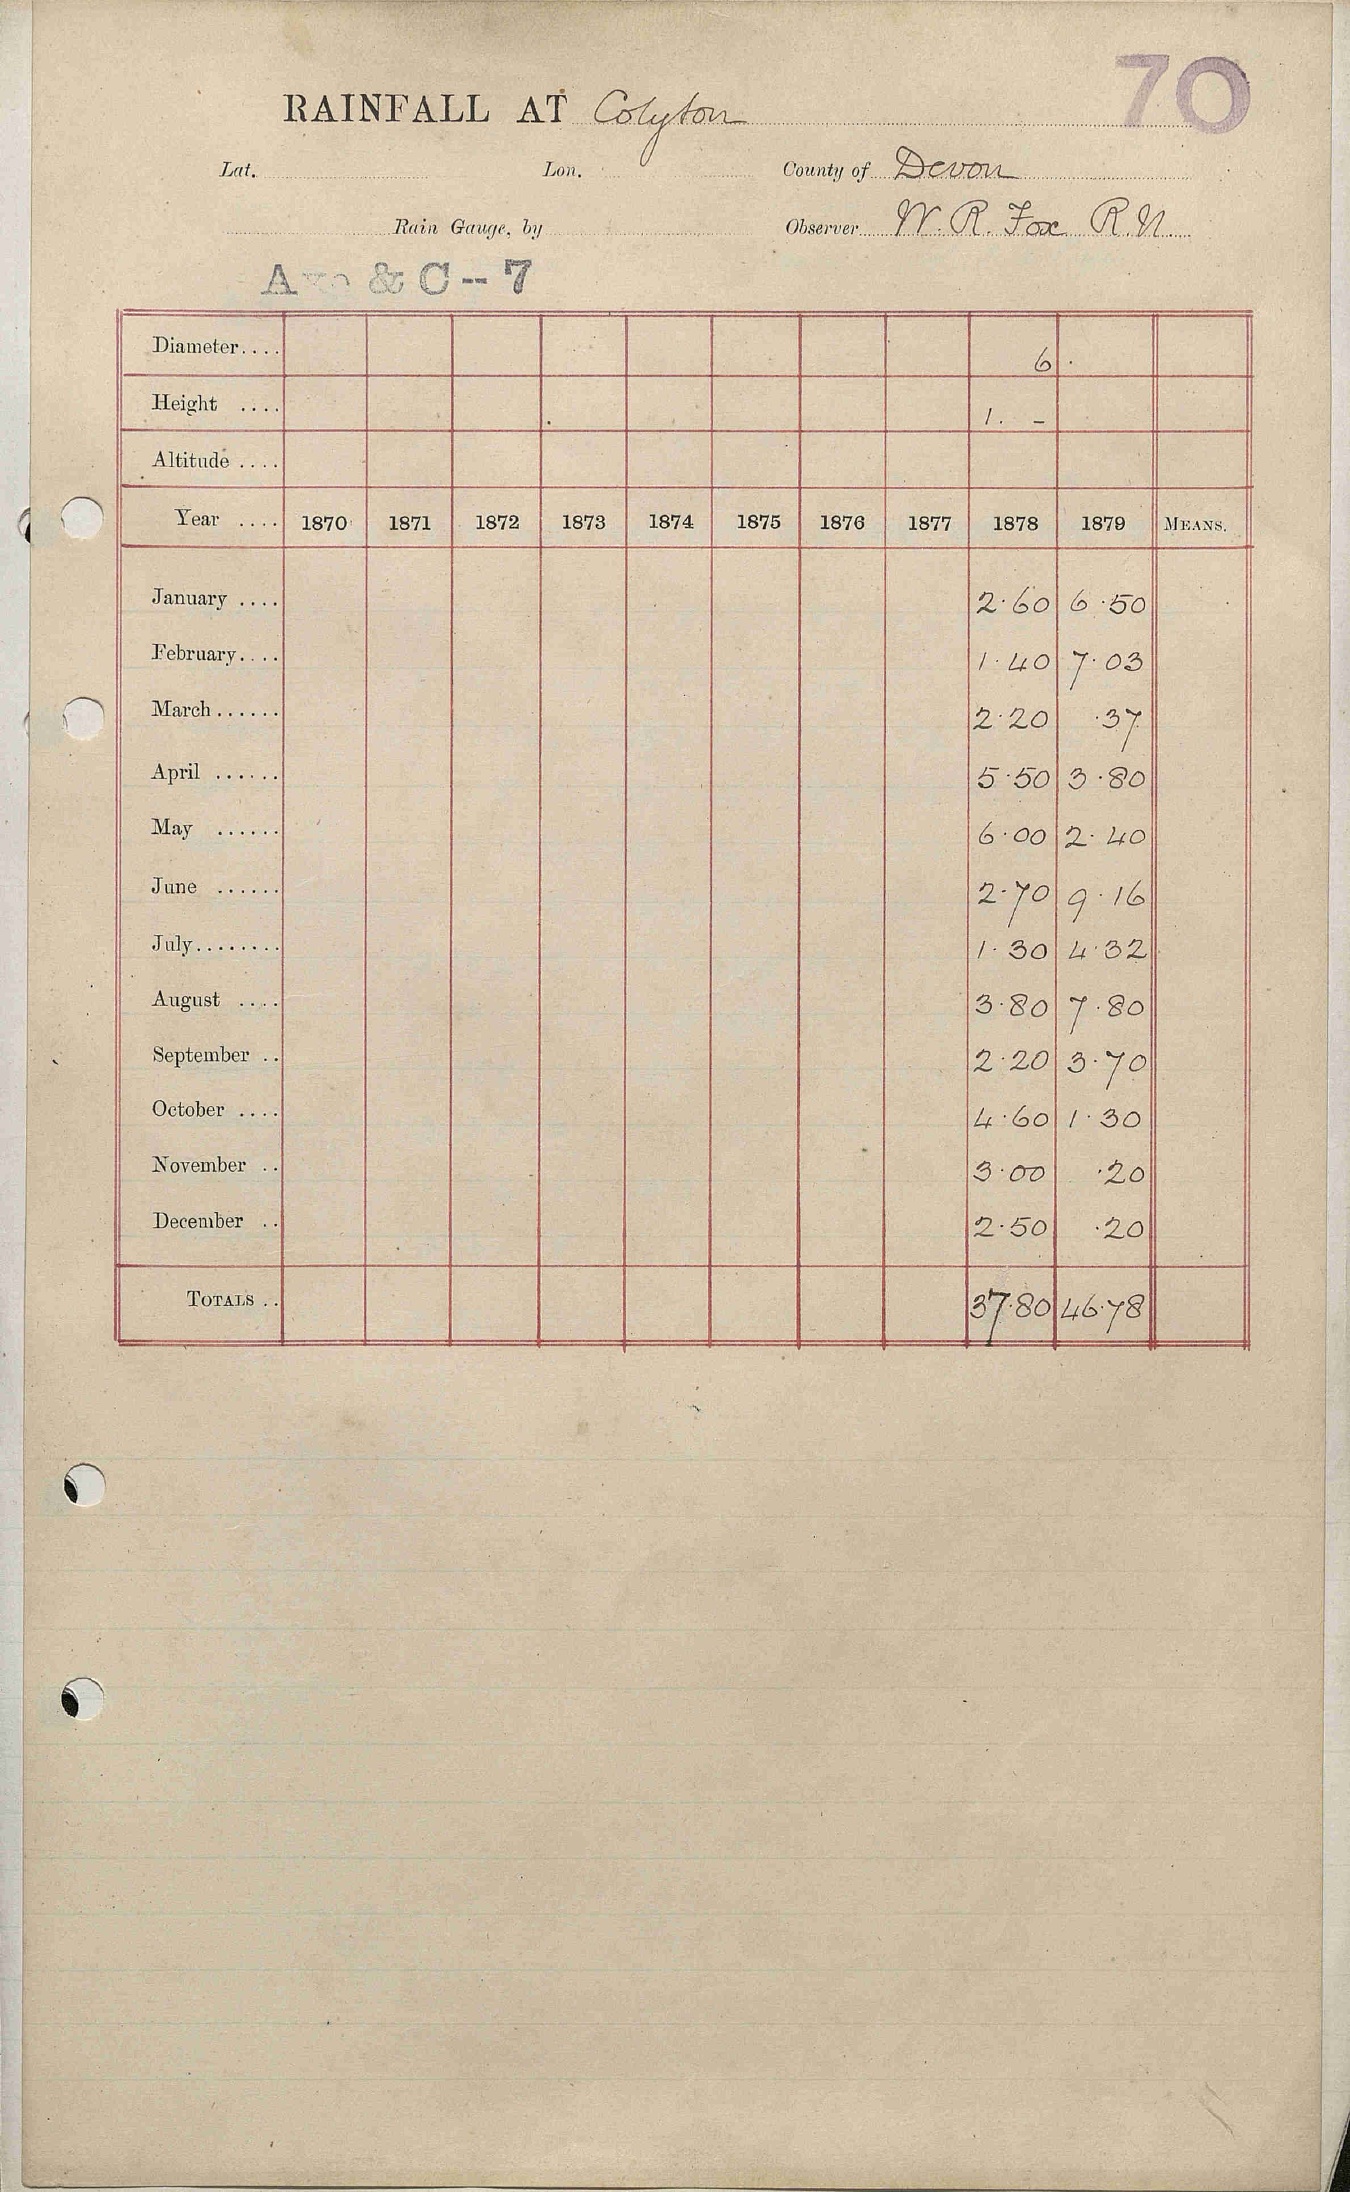 70
RAINFALL AT Colyton
Lat. Lon. County of Devon
Rain Gauge, by Observer W. R. Fox R.N.
& C -- 7
Diameter.... 6
Height .... 1. -
Altitude ....
Year .... 1870 1871 1872 1873 1874 1875 1876 1877 1878 1879 MEANS.
January .... 2.60 6.50
February.... 1.40 7.03
March...... 2.20 .37
April ...... 5.50 3.80
May ...... 6.00 2.40
June ...... 2.70 9.16
July........ 1.30 4.32
August .... 3.80 7.80
September .. 2.20 3.70
October .... 4.60 1.30
November .. 3.00 .20
December .. 2.50 .20
TOTALS .. 37.80 46.78